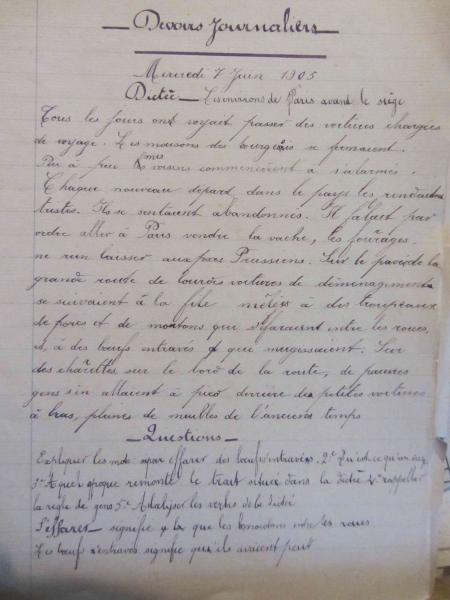 Devoirs Journaliers
Mercredi 7 Juin 1905
Dictée — Les environs de Paris avant le siège
Tous les jours ont voyait passer des voitures chargées
de voyage. Les maisons des bourgeois se fermaient.
Peu à peu mes voisins commencèrent à s'alarmer.
Chaque nouveau départ dans le pays les rendait
tristes. Ils se sentaient abandonnés. Il falait par
ordre aller à Paris vendre la vache, les fourrages
ne rien laisser aux Prussiens. Sur le pavé de la
grande route de lourdes voitures de déménagements
se suivaient à la file mêlées à des troupeaux
de porcs et de moutons qui s'éfaraient entre les roues,
à des bœufs entravés qui mugissaient. Sur
des charettes sur le bord de la route, de pauvres
gens s'en allaient à pied derrière des petites voitures
à bras, pleines de meubles de l'ancien temps
Questions
Expliquer les mots: effarer des bœufs entravés. 2° Qu'est ce qu'un
3° A quel époque remonte le trait situé dans la dictée 4° rappeller
la règle de gens 5° Analyser les verbes de la dictée
S'effarer signifie que les moutons entre les roues
Les bœufs entravés signifie qu'ils avaient peur